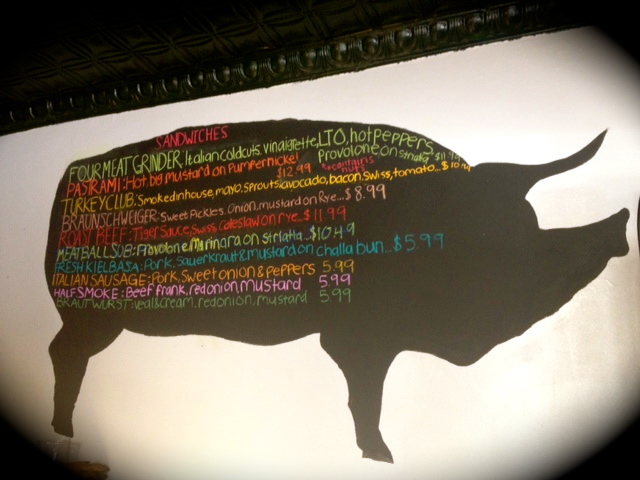 SANDWICHES
FOUR MEAT GRINDER, Italian coldcuts, vinaigrette, LTO, hot peppers
provolone on striatta $11.99
PASTRAMI: Hot, big mustard on Pumpernickel $12.99 *contains nuts
TURKEY CLUB: Smoked in house, mayo, sprouts, avocado, bacon, swiss, tomato...$10.99
BRAUNSCHWEIGER: Sweet Pickles, Onion, mustard on Rye...$8.99
ROAST BEEF: Tiger Sauce, Swiss, Coleslaw on rye...$11.99
MEATBALL SUB: Provolone, Marinara on striatta...$10.49
FRESH KIELBASA: Pork, Sauerkraut & mustard on challa bun...$5.99
ITALIAN SAUSAGE: Pork, Sweet onion & peppers 5.99
HALF SMOKE: Beef frank, red onion, mustard 5.99
BRATWURST: veal & cream, red onion, mustard 5.99